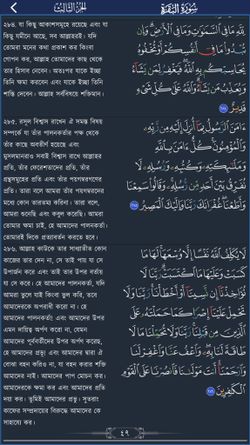 الجزء الثالث
سورة البقرة
২৮৪. যা কিছু আকাশসমূহে রয়েছে এবং যা
কিছু যমীনে আছে, সব আল্লাহরই। যদি
তোমরা মনের কথা প্রকাশ কর কিংবা
গোপন কর, আল্লাহ তোমাদের কাছে থেকে
তার হিসাব নেবেন। অতঃপর যাকে ইচ্ছা
তিনি ক্ষমা করবেন এবং যাকে ইচ্ছা তিনি
শাস্তি দেবেন। আল্লাহ সর্ববিষয়ে শক্তিমান।
২৮৫. রসূল বিশ্বাস রাখেন ঐ সমস্ত বিষয়
সম্পর্কে যা তাঁর পালনকর্তার পক্ষ থেকে
তাঁর কাছে অবতীর্ণ হয়েছে এবং
মুসলমানরাও সবাই বিশ্বাস রাখে আল্লাহর
প্রতি, তাঁর ফেরেশতাদের প্রতি, তাঁর
গ্রন্থসমুহের প্রতি এবং তাঁর পয়গম্বরগণের
প্রতি। তারা বলে আমরা তাঁর পয়গম্বরদের
মধ্যে কোন তারতম্য করিনা। তারা বলে,
আমরা শুনেছি এবং কবুল করেছি। আমরা
তোমার ক্ষমা চাই, হে আমাদের পালনকর্তা।
তোমারই দিকে প্রত্যাবর্তন করতে হবে।
২৮৬. আল্লাহ কাউকে তার সাধ্যাতীত কোন
কাজের ভার দেন না, সে তাই পায় যা সে
উপার্জন করে এবং তাই তার উপর বর্তায়
যা সে করে। হে আমাদের পালনকর্তা, যদি
আমরা ভুলে যাই কিংবা ভুল করি, তবে
আমাদেরকে অপরাধী করো না। হে
আমাদের পালনকর্তা! এবং আমাদের উপর
এমন দায়িত্ব অর্পণ করো না, যেমন
আমাদের পূর্ববর্তীদের উপর অর্পণ করেছ,
হে আমাদের প্রভূ! এবং আমাদের দ্বারা ঐ
বোঝা বহন করিও না, যা বহন করার শক্তি
আমাদের নাই। আমাদের পাপ মোচন কর।
আমাদেরকে ক্ষমা কর এবং আমাদের প্রতি
দয়া কর। তুমিই আমাদের প্রভু। সুতরাং
কাফের সম্প্রদায়ের বিরুদ্ধে আমাদের কে
সাহায্যে কর।
لِّلَّهِ مَا فِي السَّمَاوَاتِ وَمَا فِي الْأَرْضِ وَإِن
تُبْدُوا مَا فِي أَنفُسِكُمْ أَوْ تُخْفُوهُ
يُحَاسِبْكُم بِهِ اللَّهُ فَيَغْفِرُ لِمَن يَشَاءُ
وَيُعَذِّبُ مَن يَشَاءُ وَاللَّهُ عَلَىٰ كُلِّ شَيْءٍ
قَدِيرٌ ٢٨٤
ءَامَنَ الرَّسُولُ بِمَا أُنزِلَ إِلَيْهِ مِن رَّبِّهِ
وَالْمُؤْمِنُونَ كُلٌّ ءَامَنَ بِاللَّهِ
وَمَلَائِكَتِهِ وَكُتُبِهِ وَرُسُلِهِ لَا
نُفَرِّقُ بَيْنَ أَحَدٍ مِّن رُّسُلِهِ وَقَالُوا سَمِعْنَا
وَأَطَعْنَا غُفْرَانَكَ رَبَّنَا وَإِلَيْكَ الْمَصِيرُ
٢٨٥
لَا يُكَلِّفُ اللَّهُ نَفْسًا إِلَّا وُسْعَهَا لَهَا مَا
كَسَبَتْ وَعَلَيْهَا مَا اكْتَسَبَتْ رَبَّنَا لَا
تُؤَاخِذْنَا إِن نَّسِينَا أَوْ أَخْطَأْنَا رَبَّنَا وَلَا
تَحْمِلْ عَلَيْنَا إِصْرًا كَمَا حَمَلْتَهُ عَلَى
الَّذِينَ مِن قَبْلِنَا رَبَّنَا وَلَا تُحَمِّلْنَا مَا لَا
طَاقَةَ لَنَا بِهِ وَاعْفُ عَنَّا وَاغْفِرْ لَنَا
وَارْحَمْنَا أَنتَ مَوْلَانَا فَانصُرْنَا عَلَى الْقَوْمِ
الْكَافِرِينَ ٢٨٦
٤٩